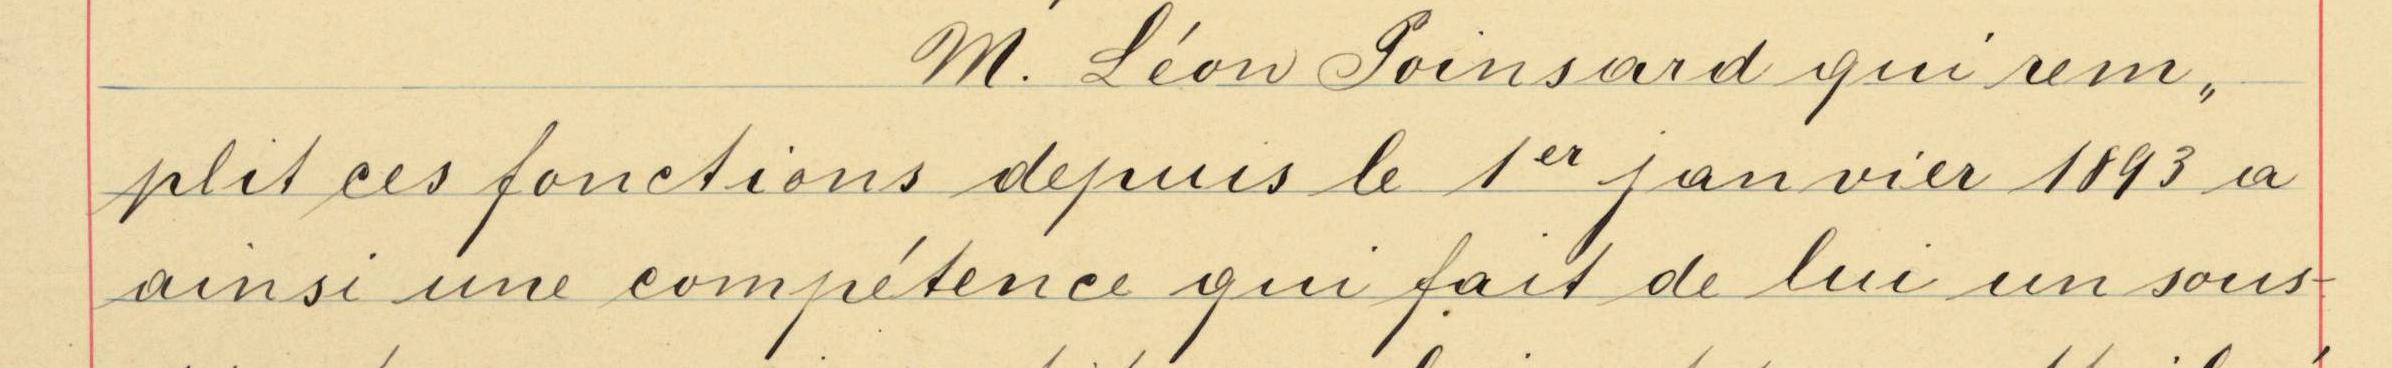 M. Léon Poinsard qui rem„
plit ces fonctions depuis le 1er janvier 1893 a
ainsi une compétence qui fait de lui un sous-